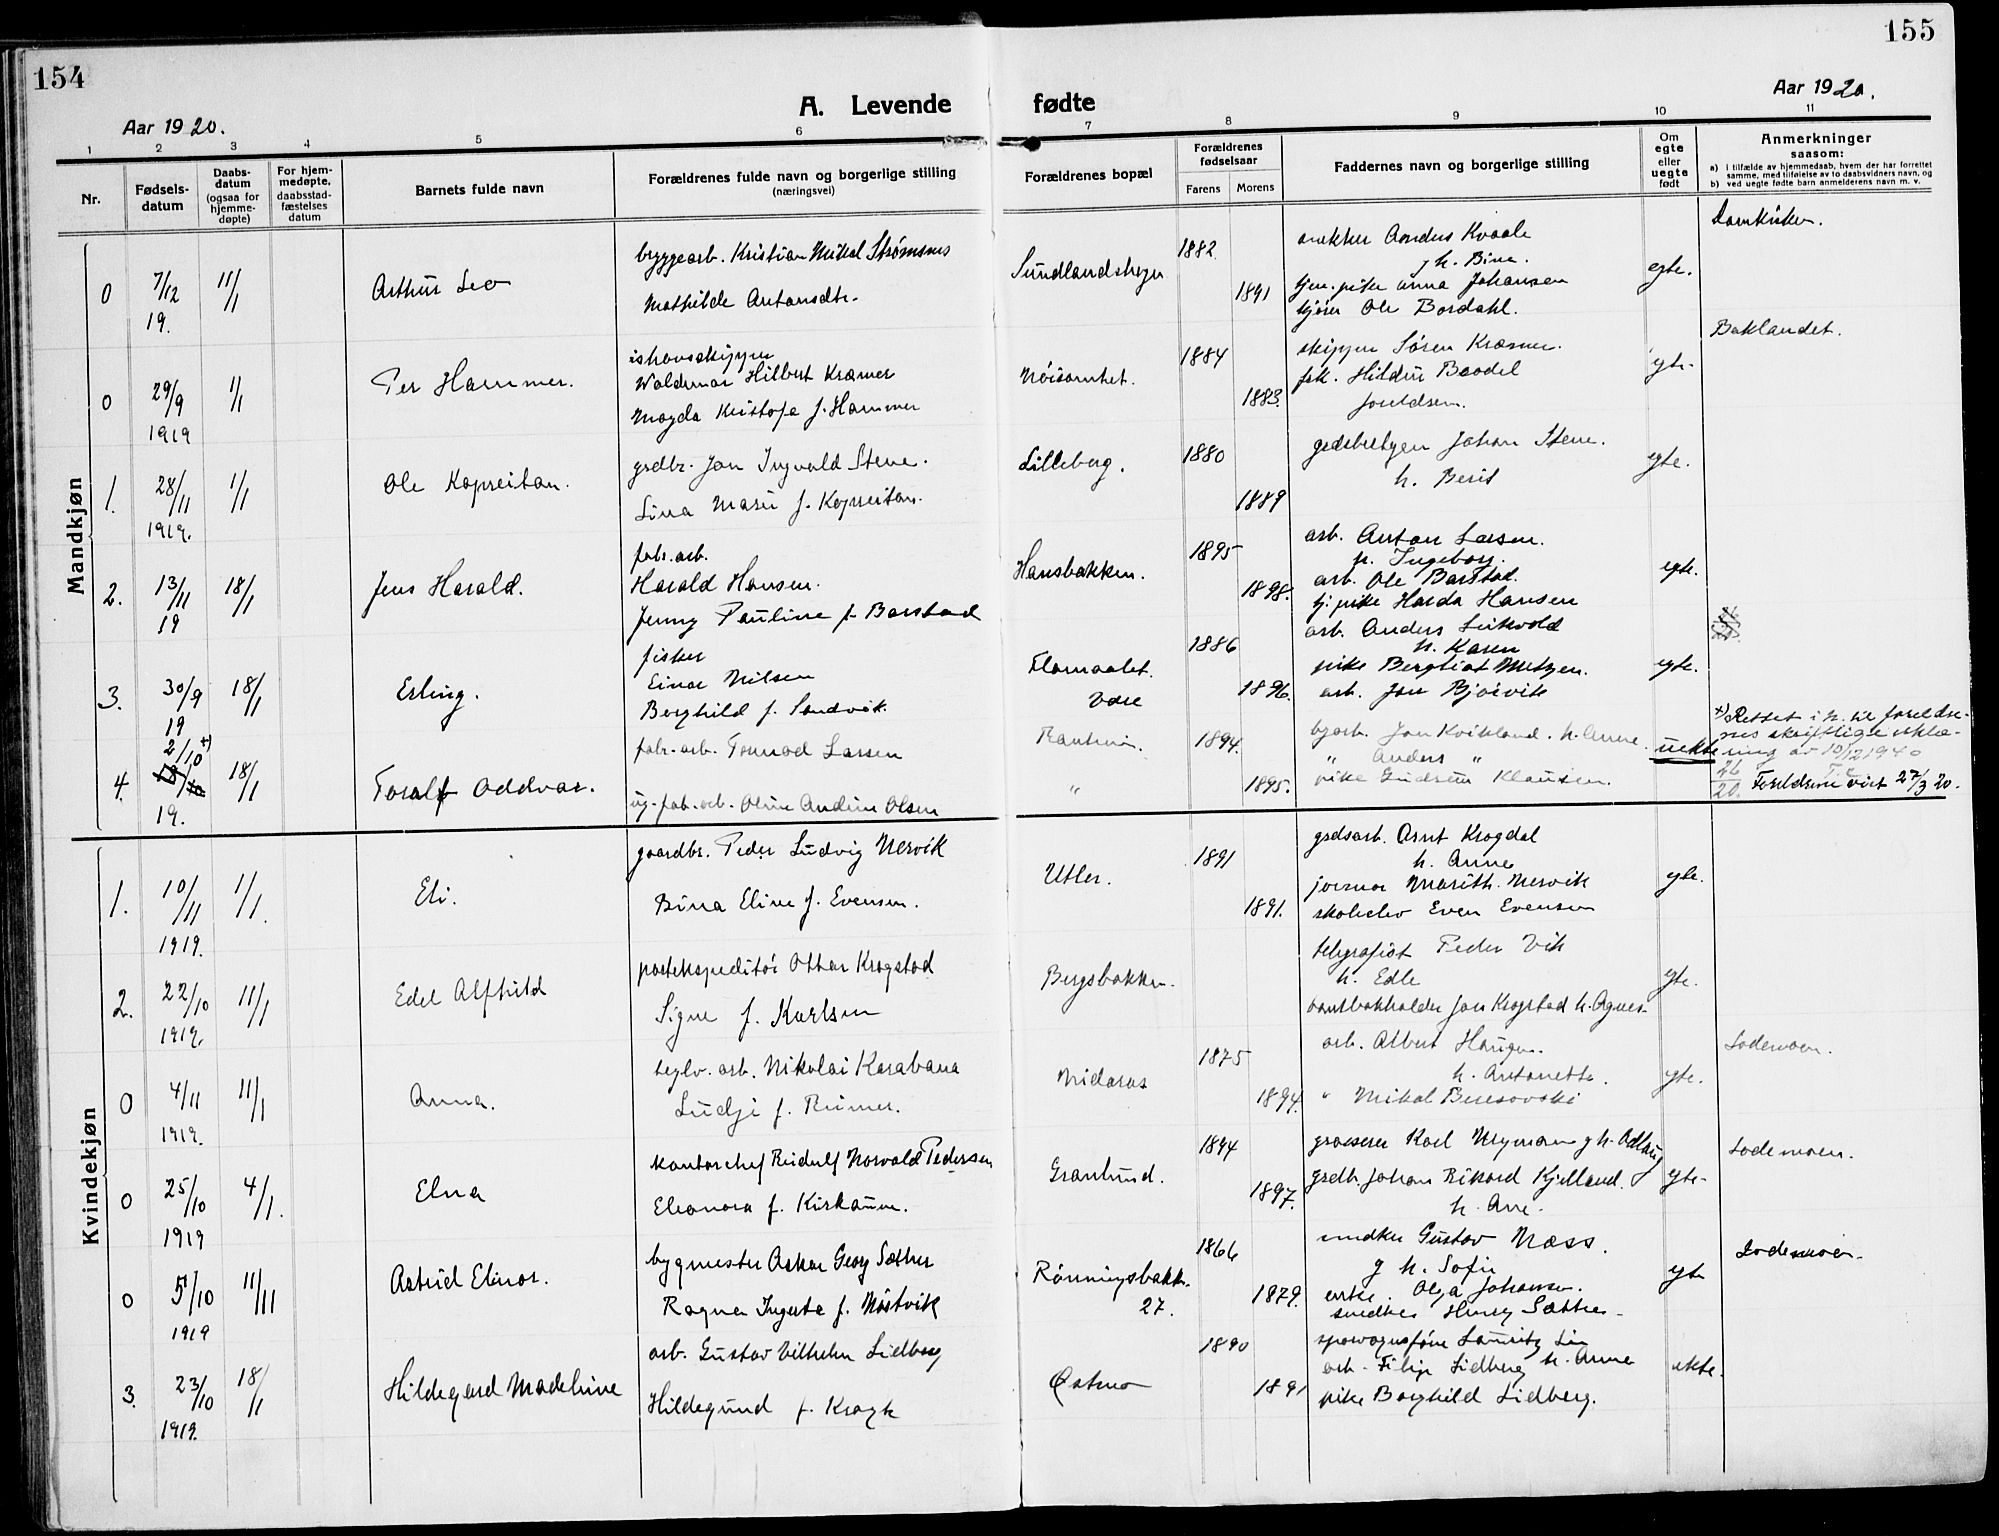 154
155
A. Levende
fødte
Aar 1920.
Aar 1920.
1 2 3 4 5 6 7 8 9 10 11
Nr.
Fødsels-
datum
Daabs-
datum
(ogsaa for
hjemme-
døpte)
For hjem-
medøpte,
daabsstad-
fæstelses
datum
Barnets fulde navn
Forældrenes fulde navn og borgerlige stilling
(næringsvei)
Forældrenes bopæl
Forældrenes
fødselsaar
Farens
Morens
Faddernes navn og borgerlige stilling
Om
egte
eller
uegte
født
Anmerkninger
saasom:
a) i tilfælde av hjemmedaab, hvem der har forrettet
samme, med tilføielse av to daabsvidners navn, og
b) ved uegte fødte barn anmelderens navn m. v.
Mandkjøn
0
7/12
19.
11/1
Arthur Leo
byggearb. Kristian Mikal Strømsnes
Mathilde Antonsdtr.
1882
1891
snekker Anders Kvaale
g h. Bina.
tjen. pike Anna Johansen
kjører Ole Bordahl.
egte.
Domkirken.
0
29/9
1919
1/1
Per Hammer.
ishavsskipper
Waldemar Hilbert Kræmer
Magda Kristofa f. Hammer
Nøisomhet.
1884
1883.
skipper Søren Kræmer.
frk. Hildur
foreldsem.
egte.
Baklandet.
1.
28/11
1919.
1/1
Ole Kopreitan.
grdbr. Jon Ingvald Stene.
Lina Marie f. Kopreitan.
Lilleberg.
1880
1889
Johan Stene.
h. Berit
egte.
2.
13/11
19
18/1
Jens Harald.
fabr. arb.
Harald Hansen.
Jenny Pauline f. Barstad
Hansbakken.
1895
1898.
arb. Anton Larsen.
h. Ingeborg.
arb. Ole Barstad.
tj. pike Harda Hansen
egte.
3.
30/9
19
18/1
Erling.
fisker
Einar Nilsen
Berghild f. Sandvik.
Være
1886
1896.
arb. Anders Leikvold
h. Karen
pike Bergliot Metzen.
arb. Jon Bjørvik
egte.
4.
2/10 x)
19.
18/1
Toralf Oddvar.
fabr. arb. Tormod Larsen
ug. fab. arb. Oline Andrine Olsen
Ranheim.
"
1894.
1895.
bjarb. Jon Kvikland. h. Anne.
" Anders "
pike Gudrun Klausen.
uekte
x) Rettet i h. til foreldre-
nes skriftlige erklæ-
ring av 10/12 1940
26/20. Foreldrene viet 27/3 20.
Kvindekjøn
1.
10/11
1919.
1/1.
Eli.
gaardbr. Peder Ludvig Nervik
Bina Eline f. Evensen.
Utler.
1891
1891.
grdsarb. Arnt Krogdal
h. Anna
jormor Marith. Nervik
skoleelev Even Evensen
gte.
2.
22/10
1919.
11/1
Edel Alfhild
postekspeditør Ottar Krogstad
Signe f. Karlsen
Bergsbakken.
telegrafist Peder Vik
h. Edle
bankbokholder Jon Krogstad h. Agnes.
gte.
0
4/11
1919.
11/1
Anna.
teglv. arb. Nikolai Karabana
Ludji f. Rimer.
Nidaros
1875
1894.
arb. Albert Haugen.
h. Antonette.
" Mikal Beresovski
gte.
Lademoen.
0
25/10
1919
4/1.
Elna
kontorchef Reidulf Norvald Pedersen
Eleonora f. Kirkaune.
Granlund.
1894
1897.
grosserer Karl Nymann g h. Adlaug
grdb. Johan Rikard Kjelland.
h. Ane.
gte.
Lademoen.
0
5/10
1919
11/11
Astrid Elinor.
bygmester Oskar Georg Sæther
Ragna Ingerta f. Nøstvik
Rønningsbakk.
27.
1866
1879.
snedker Gustav Næss.
g h. Sofie
enke. Olga Johansen.
snedker Henry Sæther
gte
Lademoen.
3.
23/10
1919.
18/1
Hildegard Madeleine
arb. Gustav Vilhelm Lidberg
Hildegund f. Krogh
Østmo
1890
1891
sporvognsfører Lauritz Lie
arb. Filip Lidberg h. Anna
pike Borghild Lidberg.
ekte.